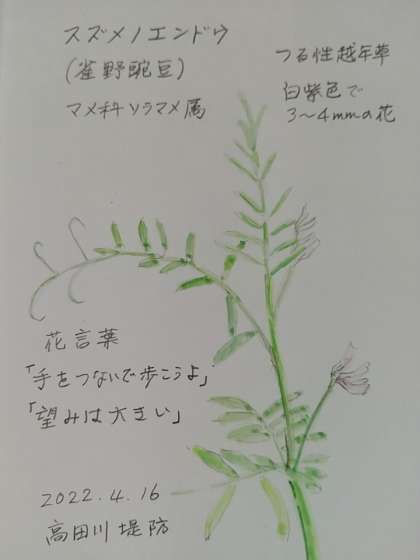 スズメノエンドウ
(雀野豌豆)
マメ科ソラマメ属
つる性越年草
白紫色で
3～4mmの花
花言葉
「手をつないで歩こうよ」
「望みは大きい」
2022.4.16
高田川堤防